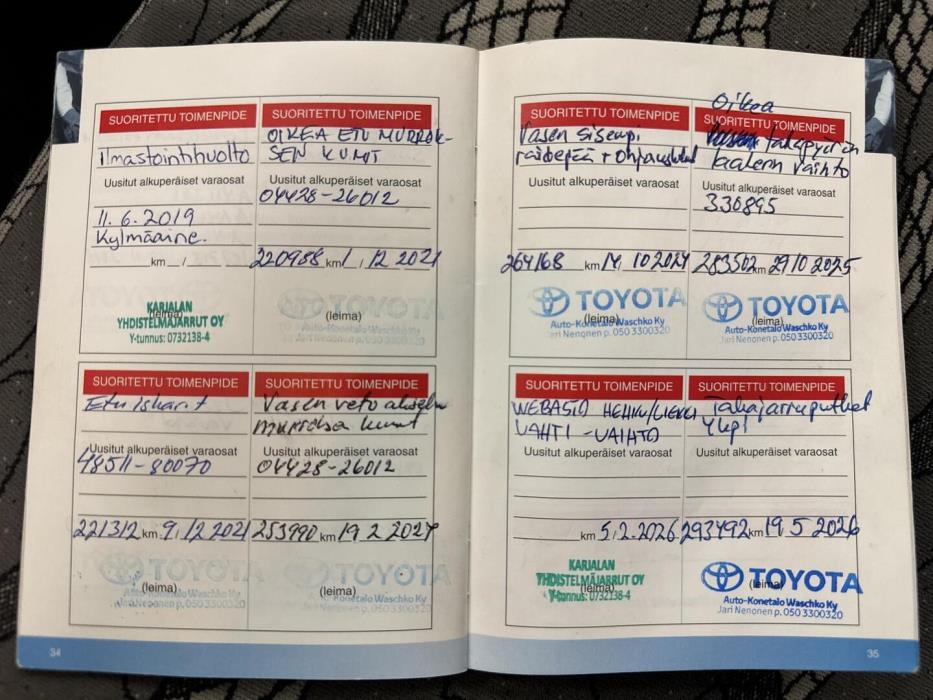 SUORITETTU TOIMENPIDE
Ilmastointihuolto
Uusitut alkuperäiset varaosat
11.6.2019
Kylmäaine.
km / 
KARJALAN
YHDISTELMÄJARRUT OY
(leima)
Y-tunnus: 0732138-4
SUORITETTU TOIMENPIDE
OIKEA ETU MURROK-
SEN KUMIT
Uusitut alkuperäiset varaosat
04428-26012
220988 km 1 / 12 2021
TOYOTA
(leima)
Auto-Konetalo Waschko Ky
Jari Nenonen p. 050 3300320
SUORITETTU TOIMENPIDE
Etu iskarit
Uusitut alkuperäiset varaosat
48511-80070
221312 km 9 / 12 2021
TOYOTA
(leima)
Auto-Konetalo Waschko Ky
Jari Nenonen p. 050 3300320
SUORITETTU TOIMENPIDE
Vasen veto akselin
murroksa kumit
Uusitut alkuperäiset varaosat
04428-26012
253990 km 19 2 2024
TOYOTA
(leima)
Auto-Konetalo Waschko Ky
Jari Nenonen p. 050 3300320
34
SUORITETTU TOIMENPIDE
Vasen sisempi
raidepää + ohjauskulmat
Uusitut alkuperäiset varaosat
264168 km 14 10 2024
TOYOTA
(leima)
Auto-Konetalo Waschko Ky
Jari Nenonen p. 050 3300320
Oikea
SUORITETTU TOIMENPIDE
takapyörän
laakerin vaihto
Uusitut alkuperäiset varaosat
330895
283502 km 29 10 2025
TOYOTA
(leima)
Auto-Konetalo Waschko Ky
Jari Nenonen p. 050 3300320
SUORITETTU TOIMENPIDE
WEBASTO HEHKU/LIEKKI
VAHTI -VAIHTO
Uusitut alkuperäiset varaosat
km 5.2.2026
KARJALAN
YHDISTELMÄJARRUT OY
(leima)
Y-tunnus: 0732138-4
SUORITETTU TOIMENPIDE
Takajarruputket
Uusitut alkuperäiset varaosat
293492 km 19 5 2026
TOYOTA
(leima)
Auto-Konetalo Waschko Ky
Jari Nenonen p. 050 3300320
35